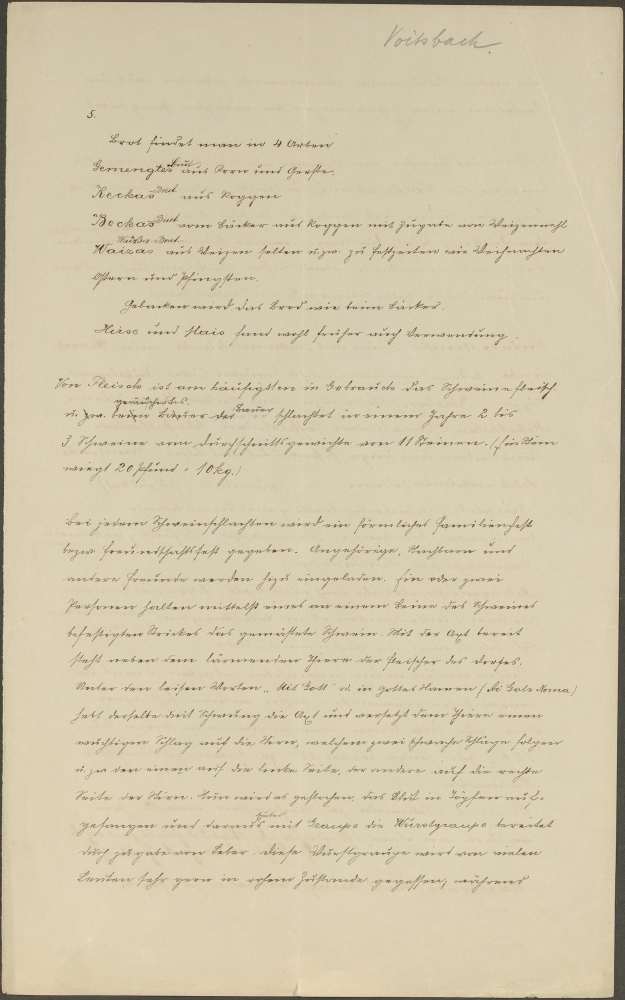 Voitsbach.
5.
Brot findet man in 4 Arten
Gemengtes Brot aus Korn und Gerste.
Reckas Brot aus Roggen
Beckas Brot vom Bäcker aus Roggen mit Zugabe von Weizenmehl
Waizas Brot aus Weizen selten u. zw. zu Festzeiten wie Weihnachten
Ostern und Pfingsten.
Gebacken wird das Brod wie beim Bäcker.
Hirse und Mais fand wohl früher auch Verwendung.
Von Fleisch ist am häufigsten in Gebrauch das Schweinefleisch
u. zw. geräuchertes. der Bauer schlachtet in einem Jahre 2 bis
3 Schweine vom Durchschnittsgewichte von 11 Steinen. (Ein Stein
wiegt 20 Pfund = 10 kg.)
Bei jedem Schweinschlachten wird ein förmliches Familienfest
bezw. Freundschaftsfest gegeben. Angehörige, Nachbarn und
andere Freunde werden hiezu eingeladen. Ein oder zwei
Personen halten mittelst eines an einem Beine des Schweines
befestigten Strickes das gemästete Schwein. Mit der Axt bereit
steht neben dem lärmenden Thiere der Fleischer des Dorfes.
Unter den leisen Worten "Mit Gott" od. in Gottes Namen (Ai Gots Noma)
hebt derselbe mit Schwung die Axt und versetzt dem Thiere einen
wuchtigen Schlag auf die Stirn, welchem zwei schwache Schläge folgen
u. zw. den einen auf die linke Seite, der andere auf die rechte
Seite der Stirn. Nun wird es gestochen, das Blut in Töpfen auf-
gefangen und daraus mit Graupe die Wurstgraupe bereitet
durch Zugabe von Leber. Diese Wurstgraupe wird von vielen
Leuten sehr gern in rohem Zustande gegessen, während